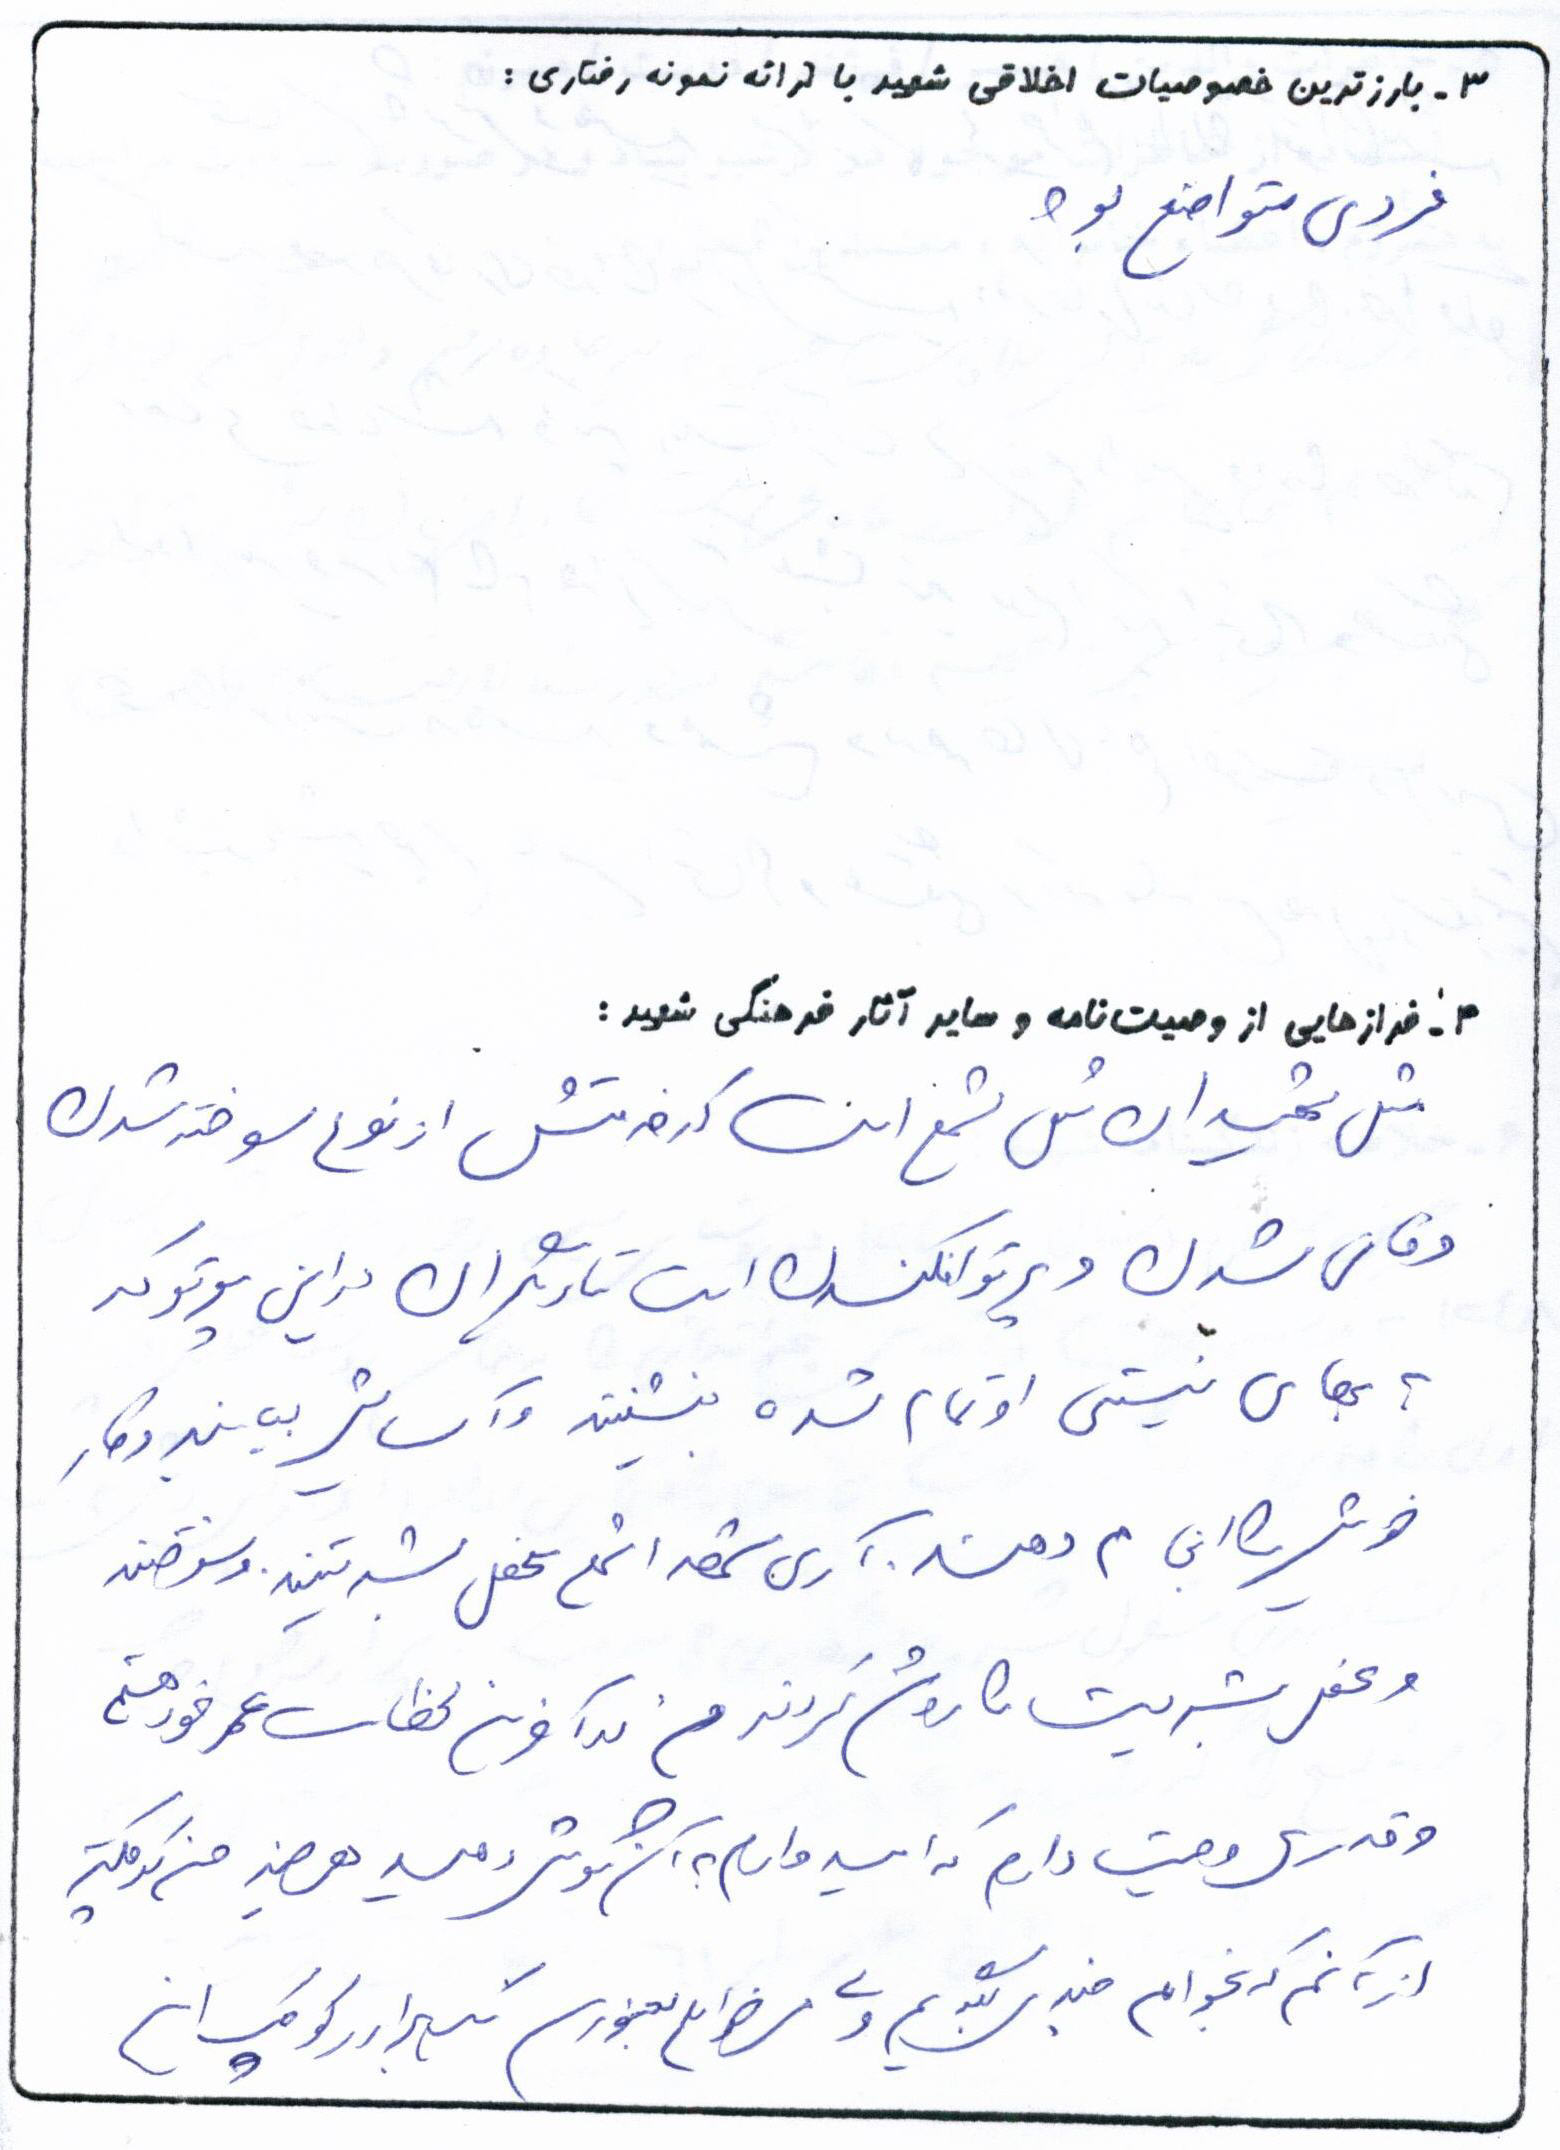 ۳- بارزترین خصوصیات اخلاقی شهید با ارائه نمونه رفتاری :
فردی متواضع بود
۴- فرازهایی از وصیت‌نامه و سایر آثار فرهنگی شهید :
مثل شهیدان مثل شمع است که خدمتش از نوع سوخته شدن
و فانی شدن و پرتو افکندن است تا دیگران در این پرتو که
به بهای نیستی او تمام شده بنشینند و آسایش بیابند و کار
خویش را انجام دهند. آری شهدا شمع محفل بشریتند. و سوختند
و محفل بشریت را روشن کردند من در آخرین لحظات عمر خود هستم
و قدری وصیت دارم که امیدوارم به آن گوش دهید هر چند من کوچکتر
از آنم که بخواهم چیزی بگویم ولی می‌خواهم بعنوان یک برادر کوچک این